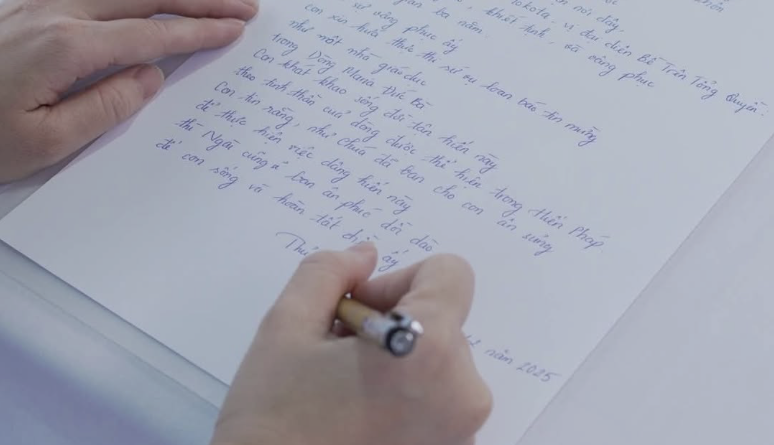 vị đại diện Bề Trên Tổng Quyền:
khiết tịnh, và vâng phục
sự vâng phục ấy
con xin hứa thực thi sứ vụ loan báo tin mừng
như một nhà giáo dục
trong Dòng Maria Đức Bà
Con khát khao sống đời tận hiến này
theo tinh thần của dòng được thể hiện trong Hiến Pháp.
Con tin rằng, như Chúa đã ban cho con ân sủng
để thực hiện việc dâng hiến này
thì Ngài cũng ban ân phúc dồi dào
để con sống và hoàn tất ấy
năm 2025